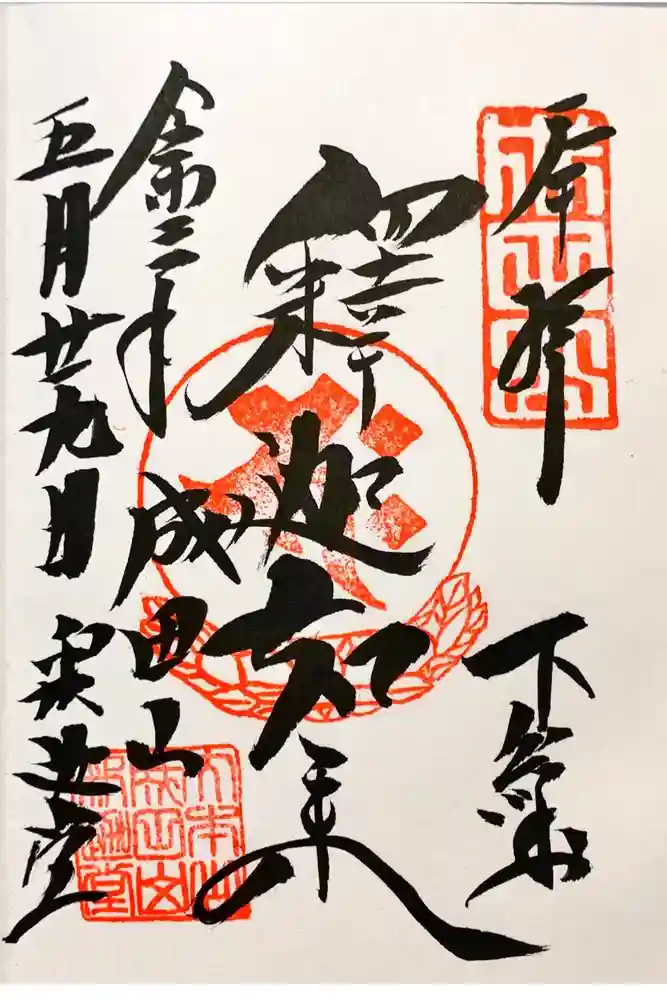 奉拝
下総
釋迦如来
令和三年
成田山
五月廿九日
釈迦堂
大本山
成田山
釈迦堂